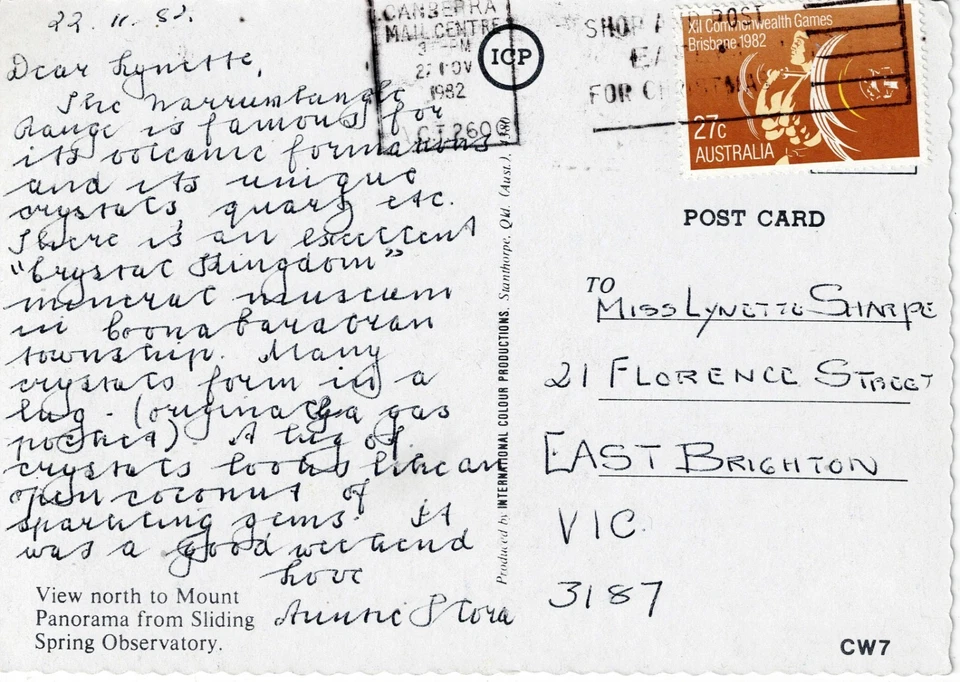 22. 11. 82.
Dear Lynette,
The Warrumbangle
Range is famous for
its volcanic formations
and its unique
crystals, quartz etc.
There is an excellent
"Crystal Kingdom"
mineral museum
in Coonabarabran
township. Many
crystals form in a
lug - (originally a gas
pocket) A lug of
crystals looks like an
open coconut of
sparkling gems. It
was a good weekend
Love
Auntie Flora
View north to Mount
Panorama from Sliding
Spring Observatory.
Produced by INTERNATIONAL COLOUR PRODUCTIONS, Stanthorpe, Qld. (Aust.) 4380
ICP
CANBERRA
MAIL CENTRE
PM
22 NOV
1982
ACT 2600
SHOP POST
FOR CHRISTMAS
XII Commonwealth Games
Brisbane 1982
27c
AUSTRALIA
POST CARD
TO
MISS LYNETTE SHARPE
21 FLORENCE STREET
EAST BRIGHTON
VIC.
3187
CW7